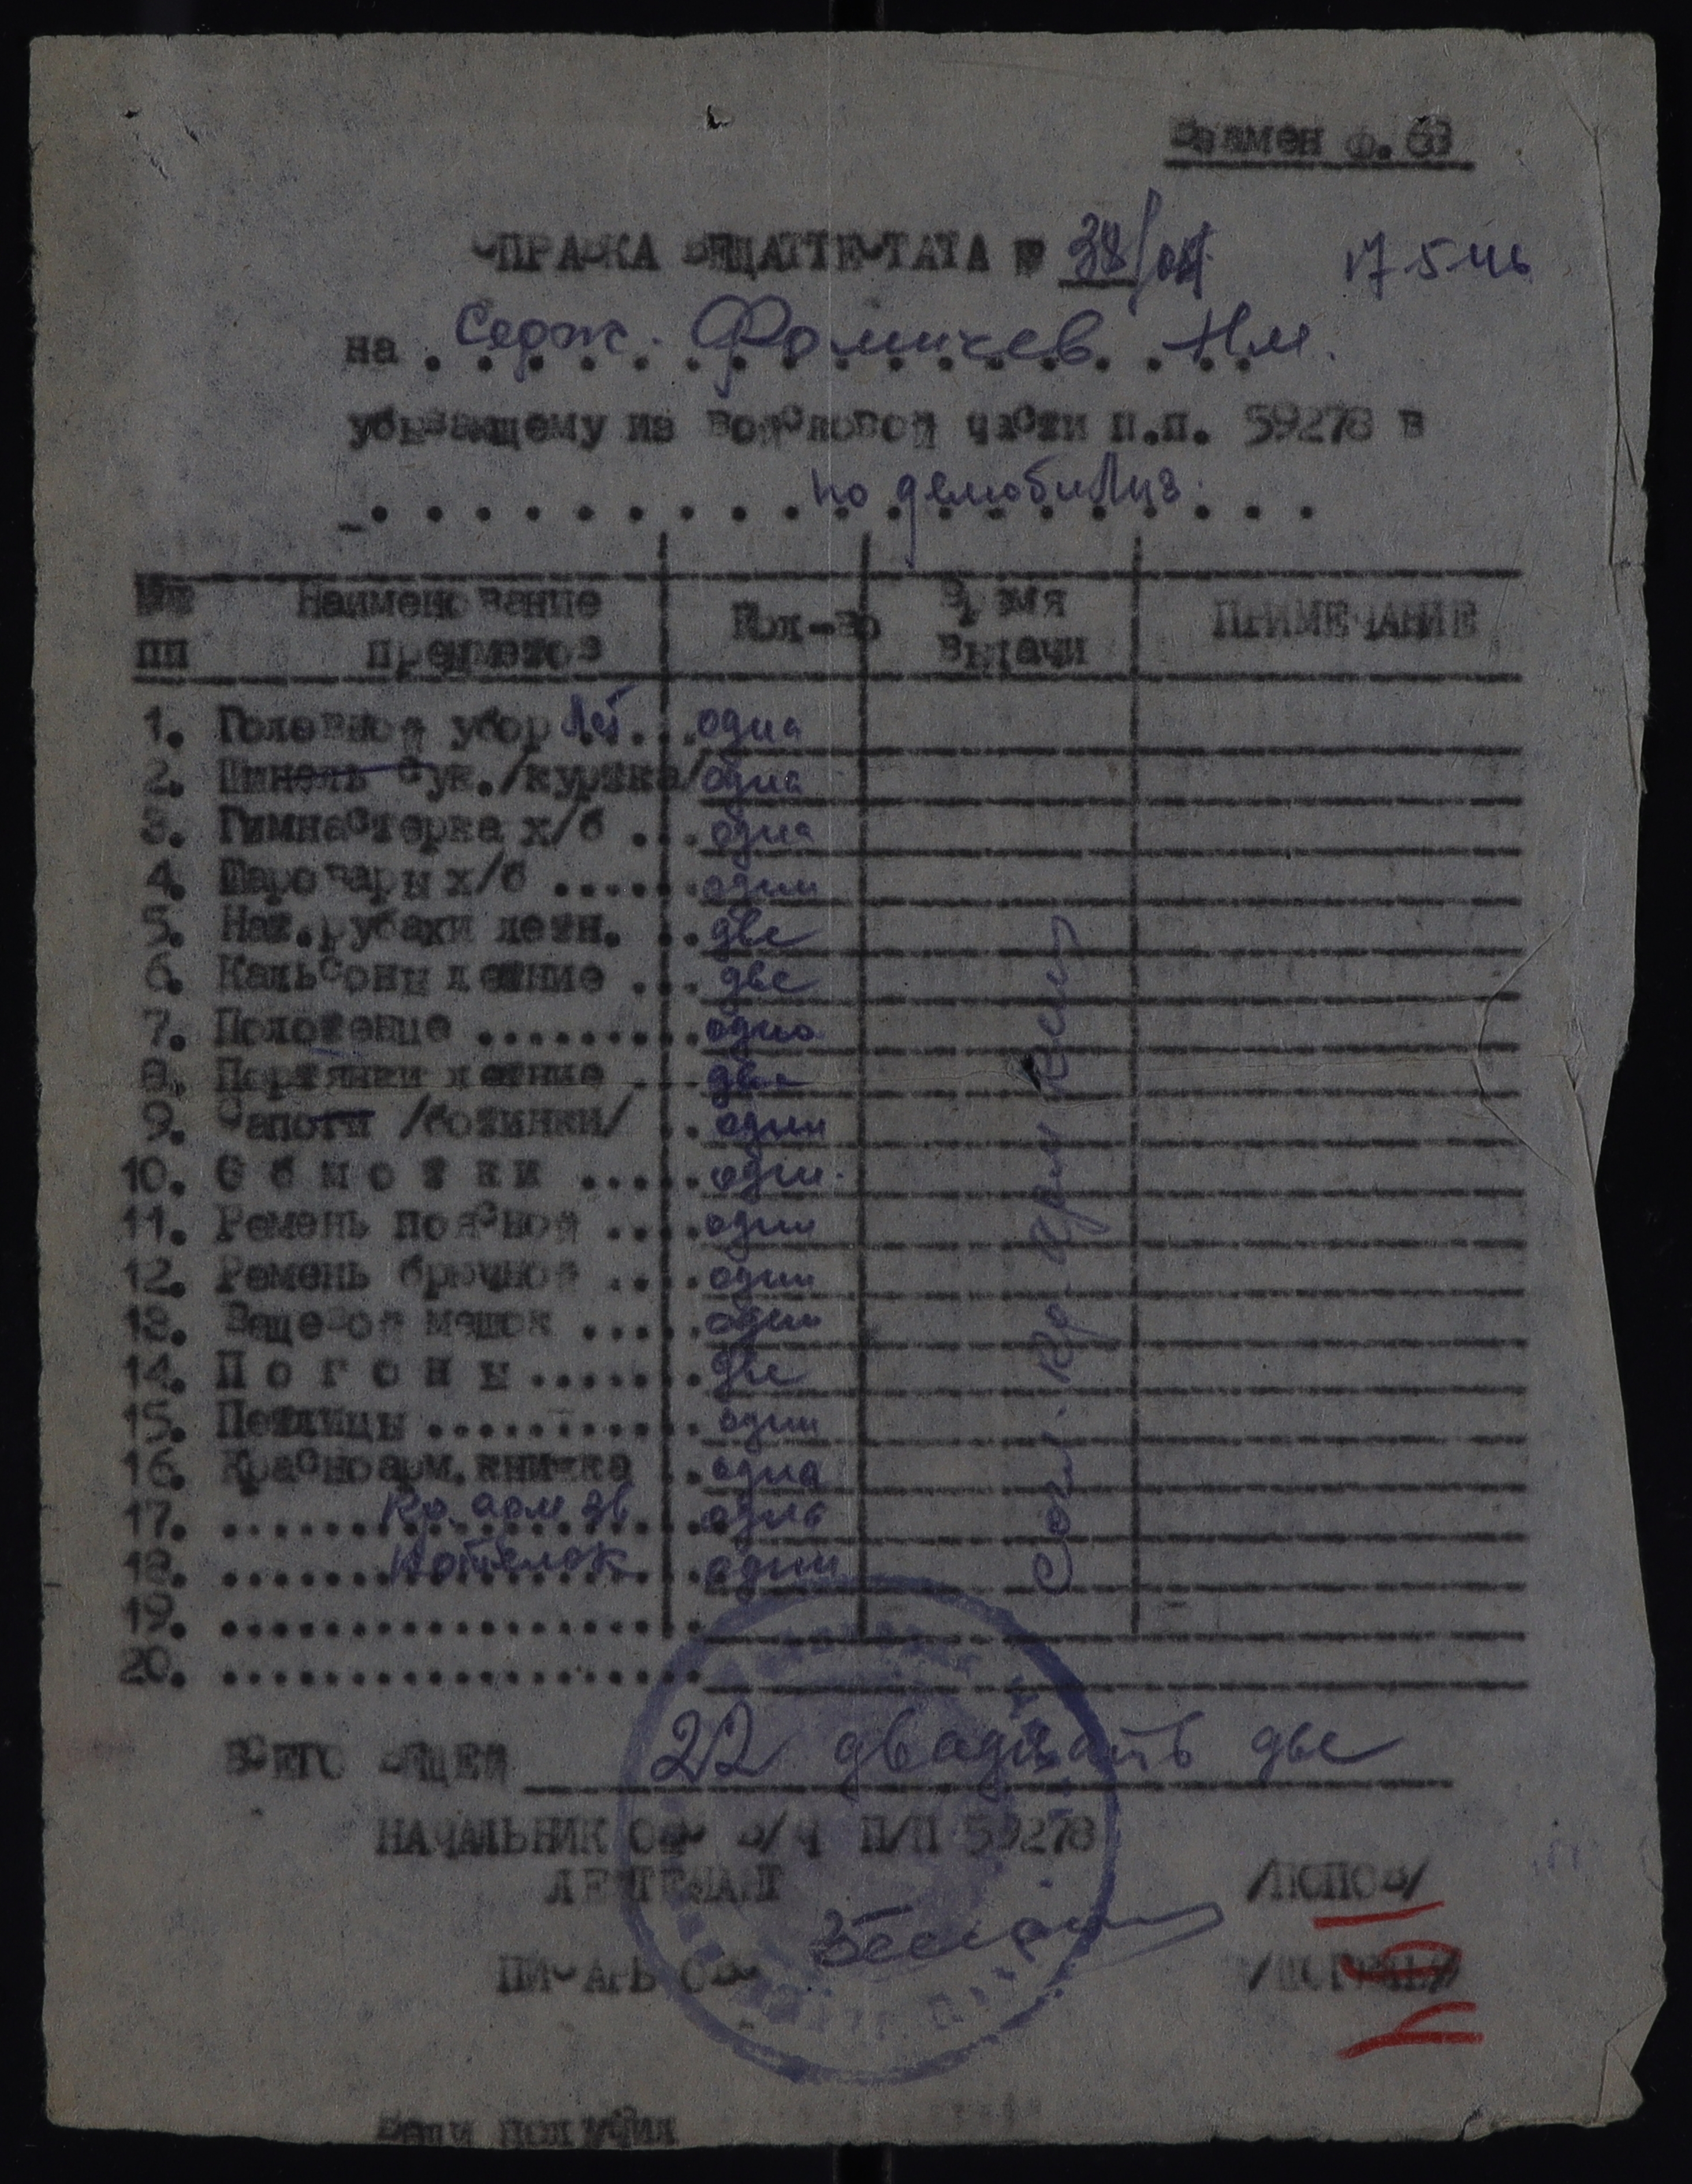 Взамен ф. 63
СПРАВКА ВЕЩАТТЕСТАТА № 38/ 17 5 46
на . Серж. Фомичев Н.М.
убывающему из войсковой части п.п. 59278 в
по демобилиз.
№№ пп Наименование предметов Кол-во Время выдачи ПРИМЕЧАНИЕ
1. Головной убор лет. ... одна
2. Шинель сук./куртка/ одна
3. Гимнастерка х/б ... одна
4. Шаровары х/б ...... одни
5. Наж.рубахи летн. .. две
6. Кальсоны летние ... две
7. Полотенце ......... одно
8. Портянки летние .. две
9. Сапоги /ботинки/ .. одни
10. О б м о т к и ..... одни.
11. Ремень поясной .... один
12. Ремень брючной .... один
13. Вещевой мешок ..... один
14. П о г о н ы ....... две
15. Петлицы ........... одни
16. Красноарм.книжка .. одна
17. Кр. арм зв одна
18. Котелок один
19. ..................
20. ..................
Согл. Кр. Арм
ВСЕГО ВЕЩЕЙ 22 двадцать две
НАЧАЛЬНИК ОВС В/Ч П/П 59278
ЛЕЙТЕНАНТ /ПОПОВ/
ПИСАРЬ ОВС
Вещи получил